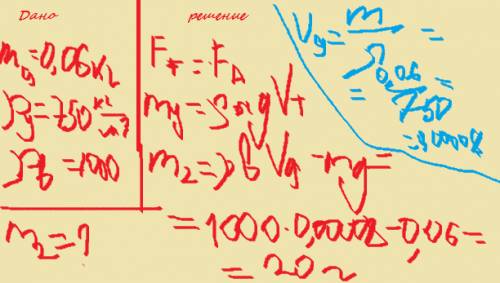 Дано
m₉=0,06 кг
ρ₉=750 кг/м³
ρв=1000
m₂=?
решение
Fт=FA
m₂=ρв V₉ -m₉=
=1000·0,00008-0,06=
=20 г
V₉=m/ρ=
=0,06/750=
=0,00008